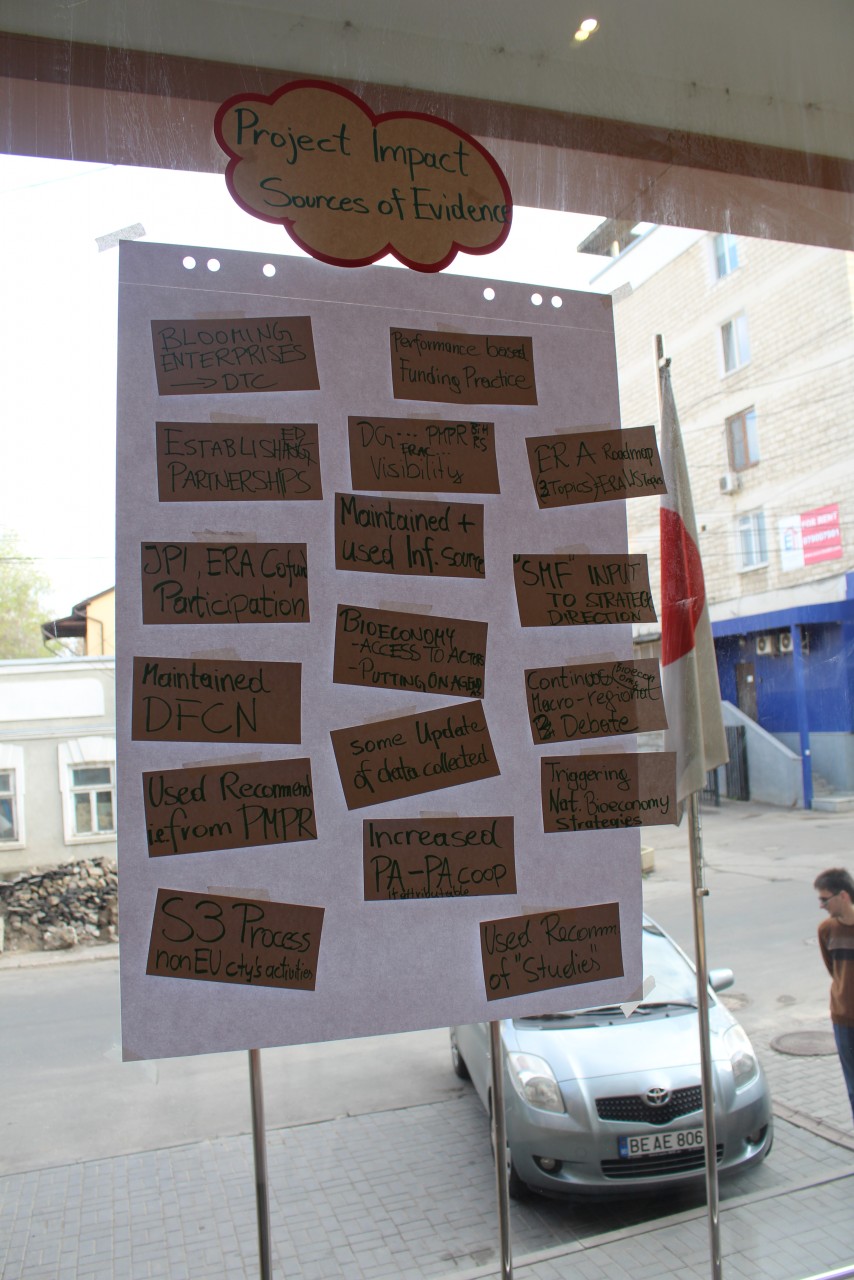 Project Impact
Sources of Evidence
BLOOMING
ENTERPRISES
→ DTC
Performance based
Funding Practice
ESTABLISHED
PARTNERSHIPS
DG ... PMPR
ERAC
Visibility
ERA Roadmap
JPI, ERA Cofund
Participation
Maintained +
used Inf. source
"SMF" INPUT
TO STRATEGIC
DIRECTION
BIOECONOMY
-ACCESS TO ACTORS
-PUTTING ON AGENDAS
Maintained
DFCN
Macro-regional
Debate
some Update
of data collected
Used Recommend
i.e from PMPR
Triggering
Nat. Bioeconomy
Strategies
Increased
PA-PA coop
if attributable
S3 Process
nonEU cty's activities
Used Recomm
of "Studies"
FOR RENT
BEAE 806